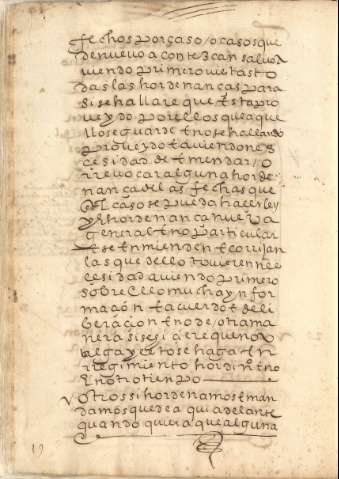 fechos por caso / o casos que
de nuevo acontezcan salvo a
viendo primero vistas to
das las hordenanças para
si se hallare que esta pro
veydo por ellos que aque
llo se guarde e no se hallando
proveydo e aviendo ne
cesidad de emendar / o
rrevocar alguna horde
nança de las fechas que
el caso se pueda hazer ley
y hordenança nueva
general e no particular
e se enmienden e corrijan
las que dello tovieren ne
cesidad aviendo primero
sobre ello mucha ynfor
maçion e acuerdo e deli
beraçion e no de otra ma
nera si se si çiere que no
balga y esto se haga en
rregimiento hordino e no
en otro tienpo
otrossi hordenamos e man
damos que de aqui adelante
quando quiera que alguna
19